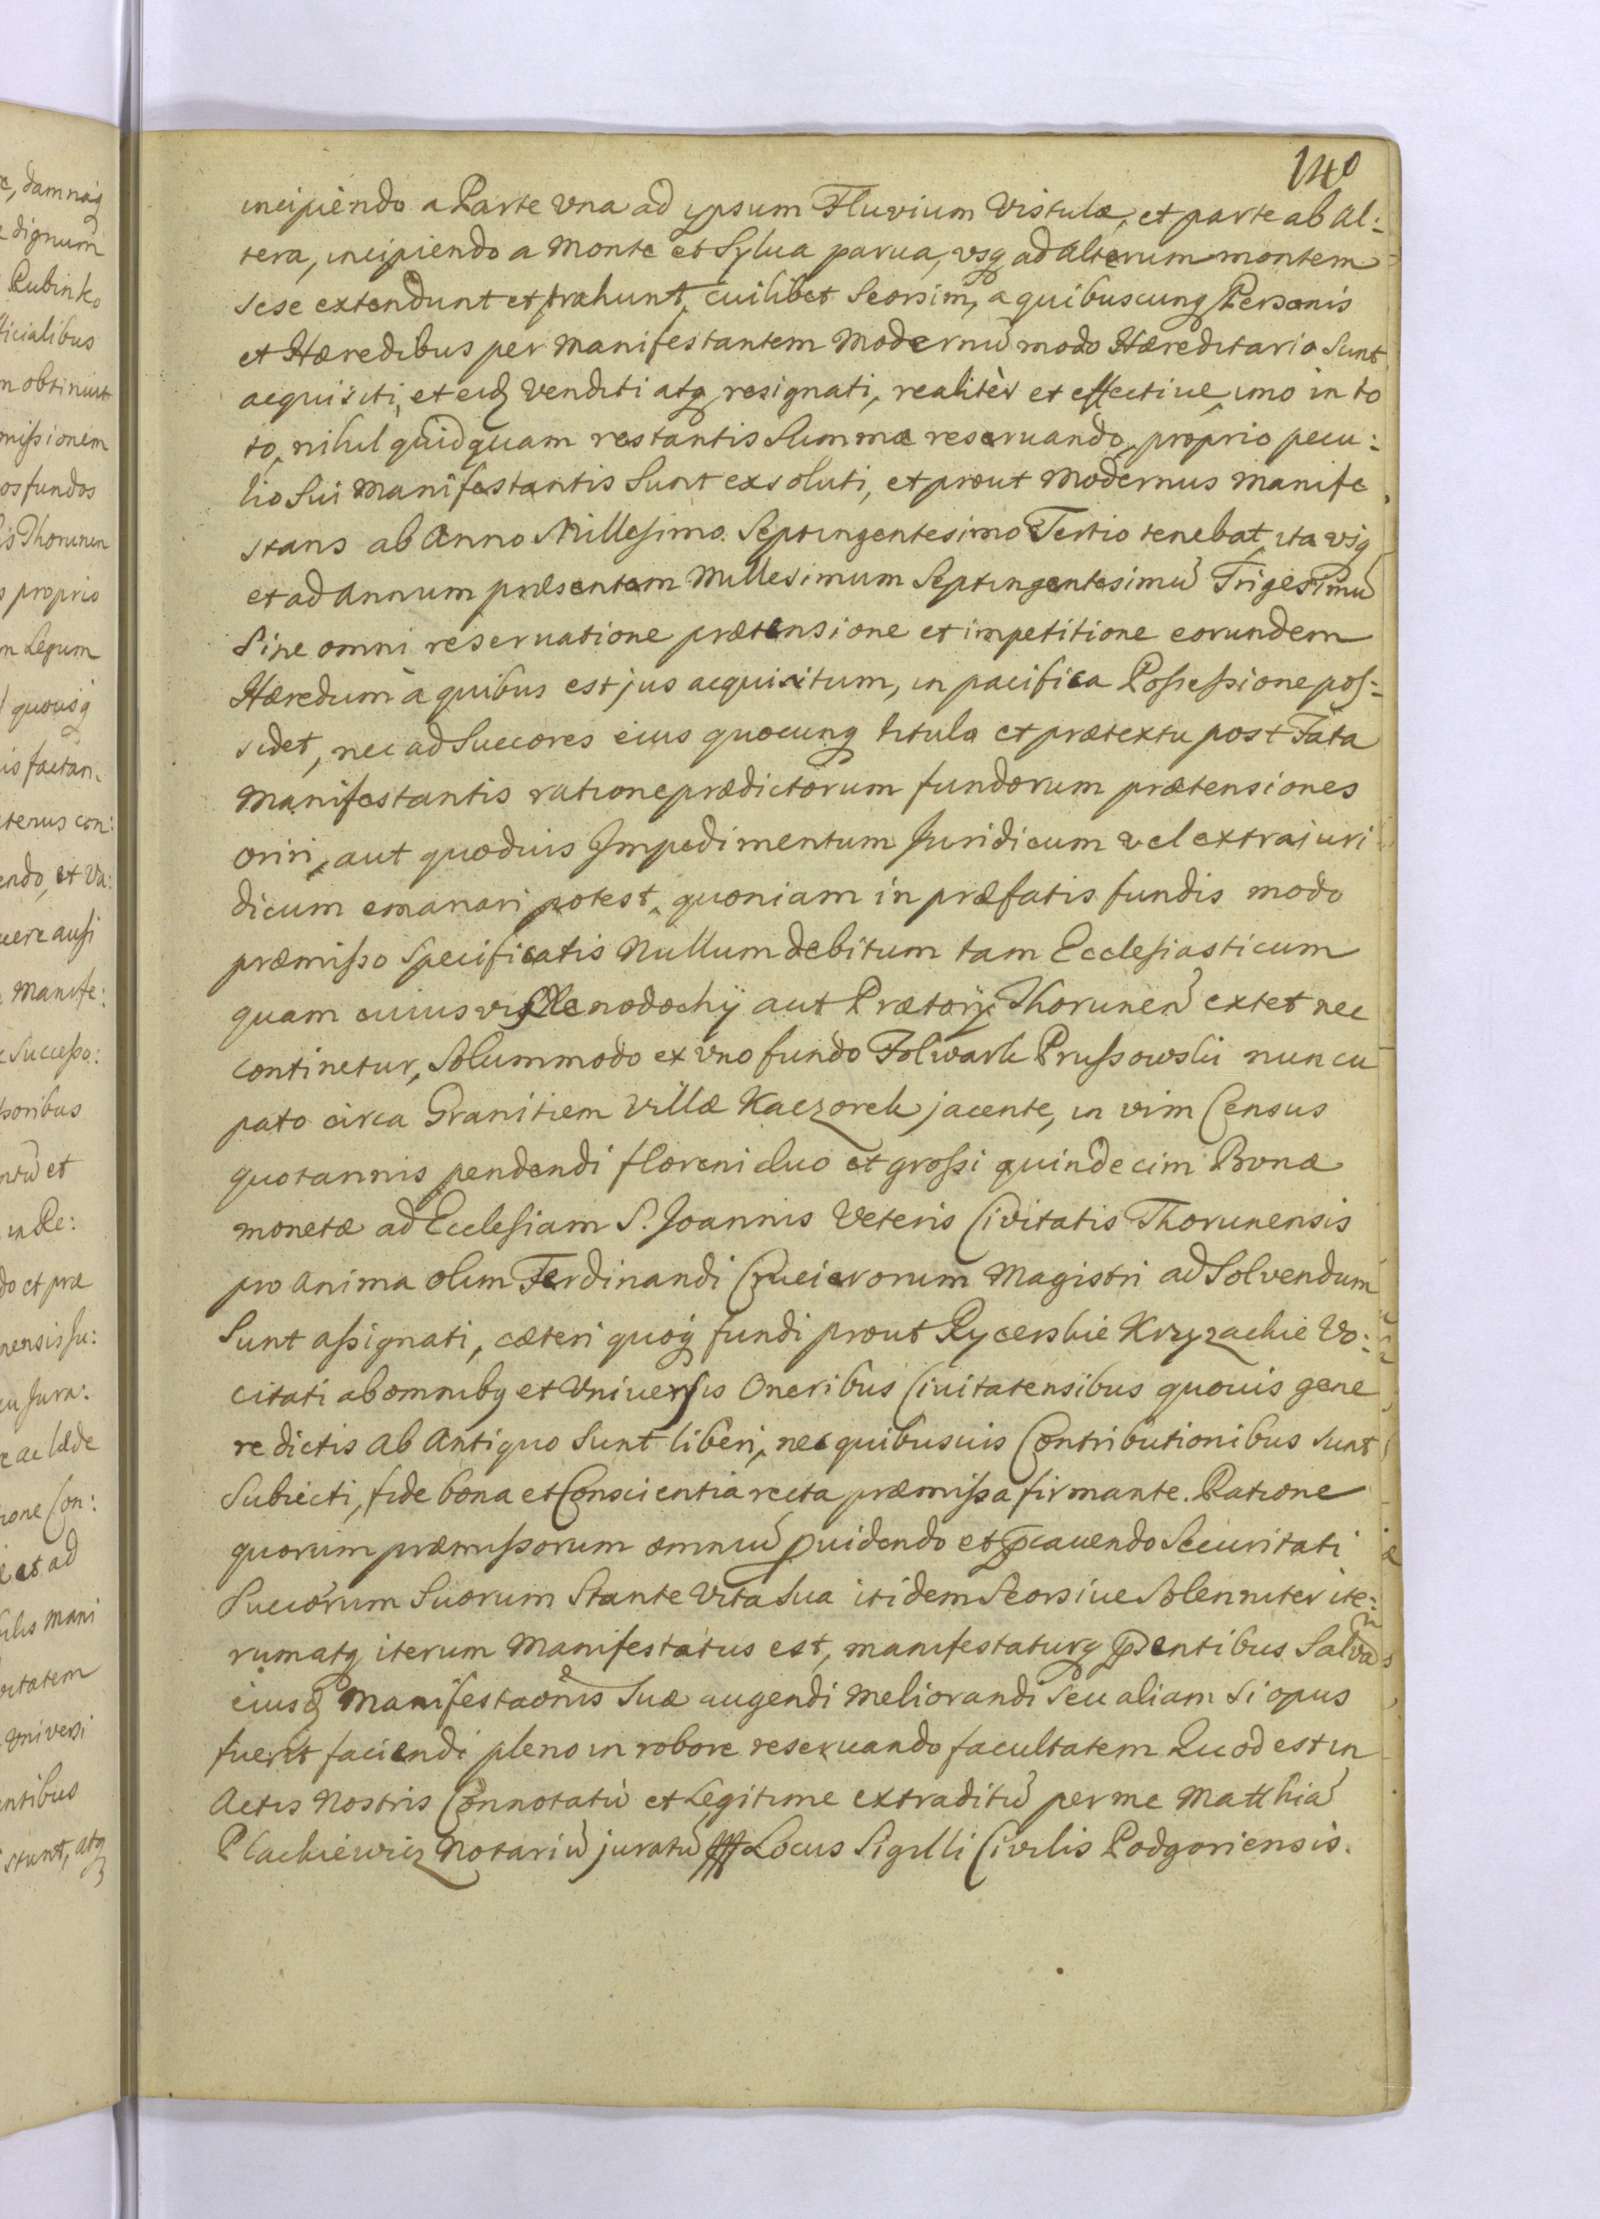 140
incipiendo a Parte Vna ad ypsum Fluvium Vistulæ, et parte ab al:
tera, incipiendo a Monte et Sylua parua, vsq ad alterum montem
sese extendunt et trahunt, cuilibet Seorsim, a quibuscunq Personis
et Hæredibus per Manifestantem Modernũ modo Hæreditario Sunt
acquisiti, et eid Venditi atq resignati, realitèr et effectiue, imo in to
to, nihil quidquam restantis Summæ reseruando, proprio pecu:
lio Sui Manifestantis Sunt exsoluti, et prout Modernus Manife
stans ab Anno Millesimo Septingentesimo Tertio tenebat, ita vsq
et ad Annum præsentem Millesimum Septingentesimũ Trigesimũ
Sine omni reseruatione prætensione et impetitione eorundem
Hæredum à quibus est jus acquisitum, in pacifica Possessione pos:
sidet, nec ad Succores eius quocunq titulo et prætextu post Fata
Manifestantis ratione prædictorum fundorum prætensiones
oriri, aut quoduis Impedimentum Juridicum vel extrajuri
dicum emanari potest, quoniam in præfatis fundis modo
præmisso Specificatis Nullum debitum tam Ecclesiasticum
quam cuiusvis Xenodochÿ aut Prætorÿ Thorunen extet nec
continetur, Solummodo ex vno fundo Folwark Prussowski nuncu
pato circa Granitiem Villæ Kaczorek jacente, in vim Census
quotannis pendendi floreni duo et grossi quindecim Bonæ
monetæ ad Ecclesiam S. Joannis Veteris Civitatis Thorunensis
pro anima olim Ferdinandi Cruciierorum Magistri ad Solvendum
Sunt assignati, cæteri quoq fundi prout Rycerskie Krzyzackie Vo:
citati ab omnibq et Vniuersis Oneribus Ciuitatensibus quouis gene
re dictis ab Antiquo Sunt liberi, nec quibusuis Contributionibus Sunt
Subiecti, fide bona et Conscientia recta præmissa firmante. Ratione
quorum præmissorum omniũ puidendo et pcauendo Securitati
Succorum Suorum Stante Vita Sua itidem Seorsiue Solenniter ite:
rum atq iterum Manifestatus est, manifestaturq psentibus Salva
eiusd Manifestaõnis Suæ augendi Meliorandi Seu aliam Si opus
fuerit faciendi pleno in robore reseruando facultatem Quod est in
Actis Nostris Connotatũ et Legitime extraditũ per me Matthiã
Plackiewicz Notariũ juratũ Locus Sigilli Civilis Podgoriensis.